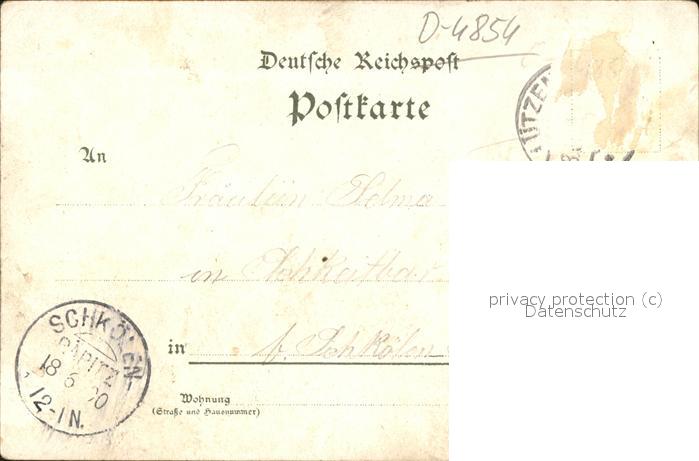 D-4854
Deutsche Reichspost
Postkarte
ÜTZEN
An
Fräulein Selma
in
in b. Schkölen
Wohnung
(Straße und Hausnummer)
SCHKÖLEN-
PÄPITZ
18 6 00
12-1N.
privacy protection (c)
Datenschutz